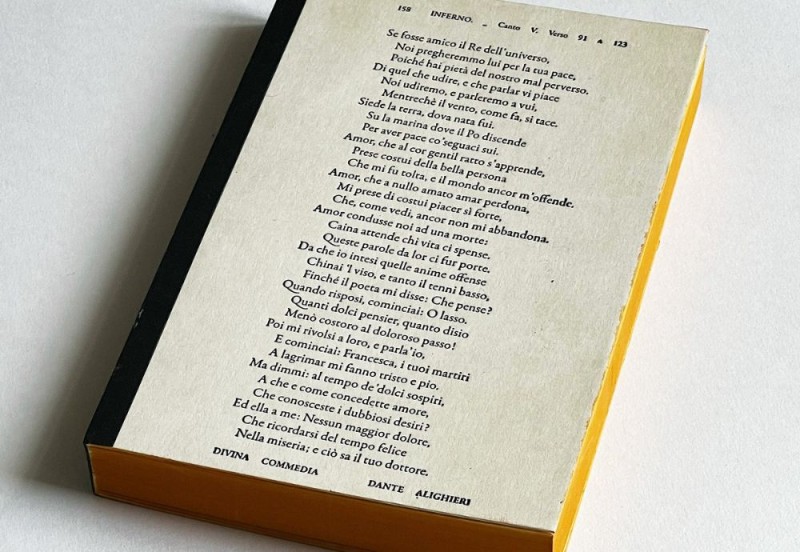 158 INFERNO. – Canto V. Verso 91 a 123
Se fosse amico il Re dell'universo,
Noi pregheremmo lui per la tua pace,
Poiché hai pietà del nostro mal perverso.
Di quel che udire, e che parlar vi piace
Noi udiremo, e parleremo a vui,
Mentrechè il vento, come fa, si tace.
Siede la terra, dova nata fui.
Su la marina dove il Po discende
Per aver pace co'seguaci sui.
Amor, che al cor gentil ratto s'apprende,
Prese costui della bella persona
Che mi fu tolta, e il mondo ancor m'offende.
Amor, che a nullo amato amar perdona,
Mi prese di costui piacer sì forte,
Che, come vedi, ancor non mi abbandona.
Amor condusse noi ad una morte:
Caina attende chi vita ci spense.
Queste parole da lor ci fur porte.
Da che io intesi quelle anime offense
Chinai 'l viso, e tanto il tenni basso,
Finché il poeta mi disse: Che pense?
Quando risposi, cominciai: O lasso.
Quanti dolci pensier, quanto disio
Menò costoro al doloroso passo!
Poi mi rivolsi a loro, e parla'io,
E cominciai: Francesca, i tuoi martiri
A lagrimar mi fanno tristo e pio.
Ma dimmi: al tempo de'dolci sospiri,
A che e come concedette amore,
Che conosceste i dubbiosi desiri?
Ed ella a me: Nessun maggior dolore,
Che ricordarsi del tempo felice
Nella miseria; e ciò sa il tuo dottore.
DIVINA COMMEDIA DANTE ALIGHIERI